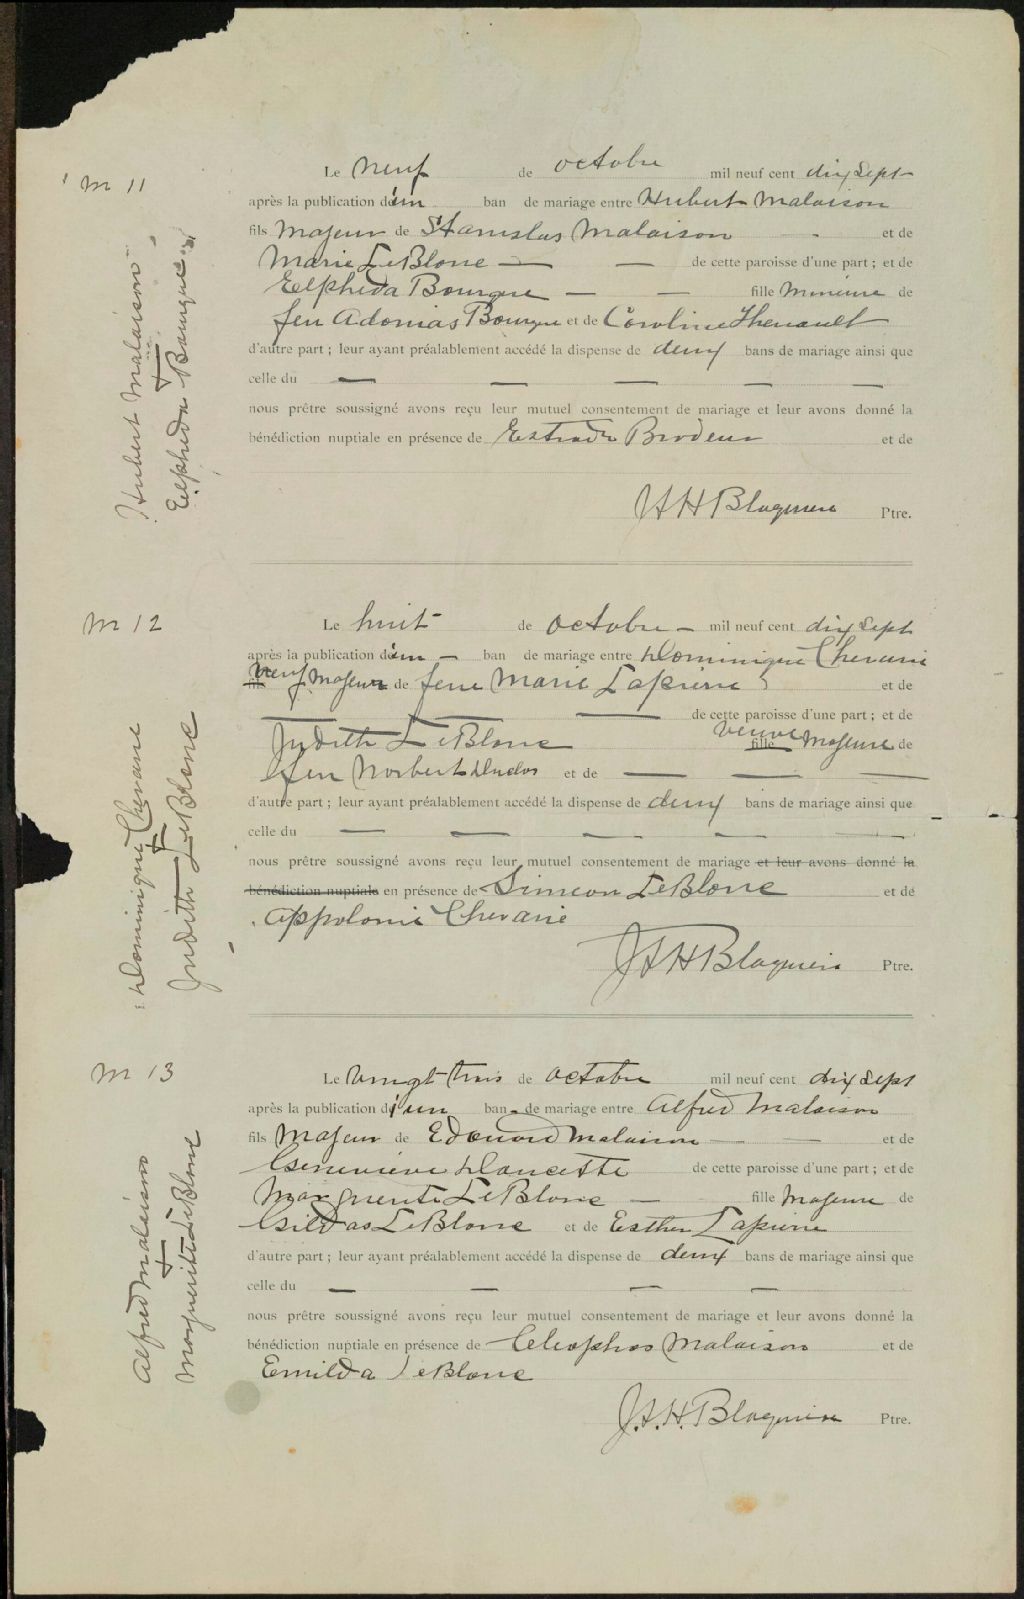 M 11
Hubert Malaison
Elpheda Bourque
Le neuf de octobre mil neuf cent dix Sept
après la publication d'un ban de mariage entre Hubert Malaison
fils Majeur de Stanislas Malaison - et de
Marie LeBlanc — — de cette paroisse d'une part ; et de
Elpheda Bourque — — fille Mineure de
feu Adonias Bourque et de Caroline Theriault
d'autre part ; leur ayant préalablement accédé la dispense de deux bans de mariage ainsi que
celle du — — — — —
nous prêtre soussigné avons reçu leur mutuel consentement de mariage et leur avons donné la
bénédiction nuptiale en présence de Brodeur et de
Blaquiere Ptre.
M 12
Dominique Chevarie
Judith LeBlanc
Le huit de octobre — mil neuf cent dix Sept
après la publication d'un — ban de mariage entre Dominique Chevarie
fils veuf Majeur de feue Marie Lapierre et de
— de cette paroisse d'une part ; et de
Judith LeBlanc fille veuve Majeure de
feu Norbert Duclos et de — — —
d'autre part ; leur ayant préalablement accédé la dispense de deux bans de mariage ainsi que
celle du — — — — —
nous prêtre soussigné avons reçu leur mutuel consentement de mariage et leur avons donné la
bénédiction nuptiale en présence de Simeon LeBlanc et de
Appolonie Chevarie
Blaquiere Ptre.
M 13
Alfred Malaison
Marguerite LeBlanc
Le Vingt trois de octobre mil neuf cent dix Sept
après la publication d'un ban de mariage entre Alfred Malaison
fils Majeur de Edouard Malaison — — et de
Genevieve Doucette de cette paroisse d'une part ; et de
Marguerite LeBlanc — fille Majeure de
Gildas LeBlanc et de Esther Lapierre
d'autre part ; leur ayant préalablement accédé la dispense de deux bans de mariage ainsi que
celle du — — — —
nous prêtre soussigné avons reçu leur mutuel consentement de mariage et leur avons donné la
bénédiction nuptiale en présence de Cleophas Malaison et de
Emilda LeBlanc
J.A.H. Blaquiere Ptre.